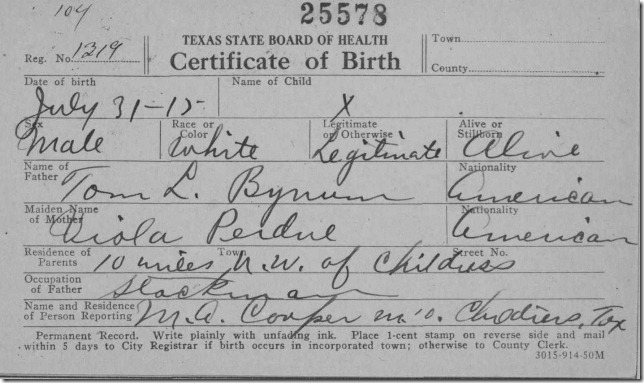 104
25578
Reg. No. 1319
TEXAS STATE BOARD OF HEALTH
Certificate of Birth
Town
County
Date of birth
Name of Child
July 31-15
X
Sex
Race or Color
Legitimate or Otherwise
Alive or Stillborn
Male
White
Legitimate
Alive
Name of Father
Nationality
Tom L. Bynum
American
Maiden Name of Mother
Nationality
Viola Perdue
American
Residence of Parents
Town
Street No.
10 miles N.W. of Childress
Occupation of Father
Stockman
Name and Residence of Person Reporting
M.D. Childress, Tex
Cooper
Permanent Record. Write plainly with unfading ink. Place 1-cent stamp on reverse side and mail
within 5 days to City Registrar if birth occurs in incorporated town; otherwise to County Clerk.
3015-914-50M